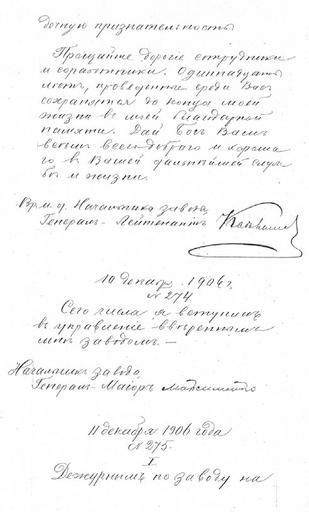 дочную признательность
Прощайте дорогіе сотрудники
и соратники. Одиннадцать
лѣтъ, проведенные среди Васъ
сохранятся до конца моей
жизни въ моей благодарной
памяти. Дай Богъ Вамъ
всѣмъ всего добраго и хороша
го въ Вашей дальнѣйшей служ
бѣ и жизни.
Вр. и. д. Начальника завода
Генералъ-Лейтенантъ
10 Декабр. 1906 г.
№ 274.
Сего числа я вступилъ
въ управленіе ввѣреннымъ
мнѣ заводомъ. —
Начальникъ завода
Генералъ-Маіоръ
11 декабря 1906 года
№ 275.
I
Дежурнымъ по заводу на